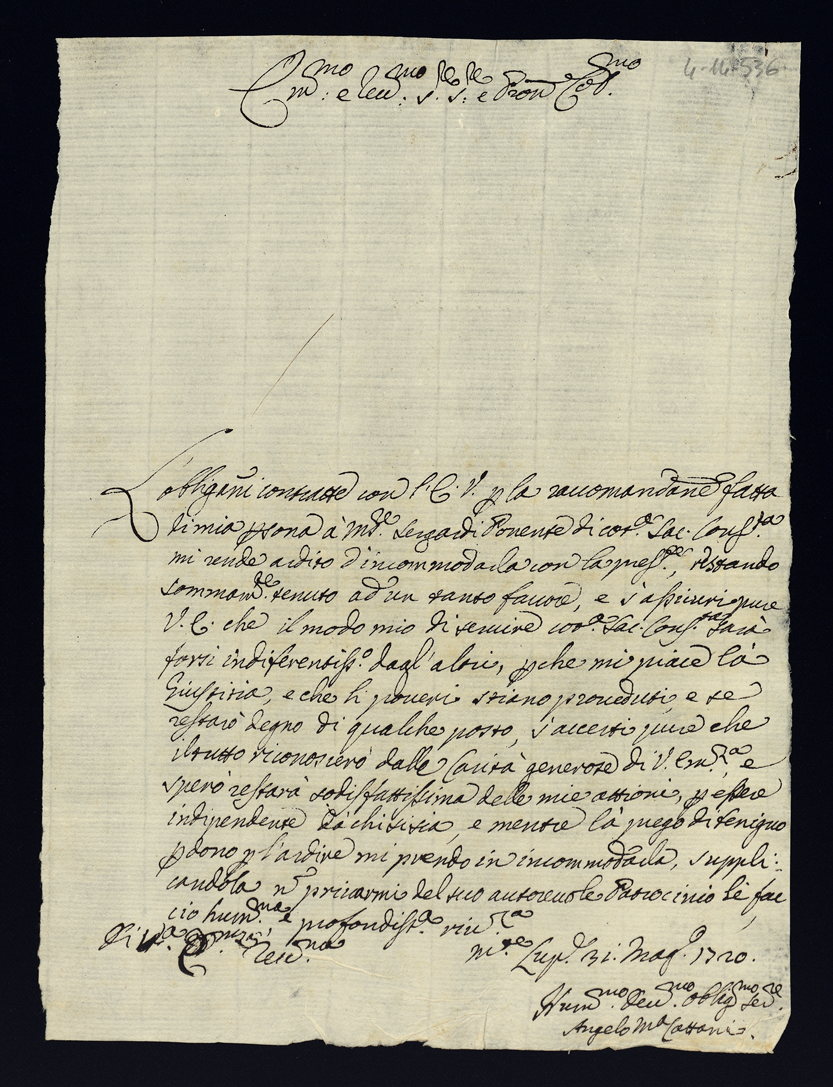 4-14-536
Em:mo e Reu:mo S:re S:re e Pron Col:mo
L'obligañi contratte con l'E. V. p la raccomandane fatta
di mia psona à Mr Sergardi Ponente di cot:a Sac. Cons:ta
mi rende ardito d'incommodarla con la pres:te, restando
sommam:te tenuto ad'un tanto fauore, e s'assicuri pure
V. E. che il modo mio di seruire cot:a Sac. Cons:ta sarà
forsi indiferentiss:o dagl'altri, pche mi piace là
Giustitia, e che li poueri stiano proueduti, e se
restarò degno di qualche posto, s'accerti pure che
il tutto riconoscerò dalla Carità generosa di V. Em:za, e
sperò restarà sodisfattissima delle mie attioni, p essere
indipendente dà chi si sia, e mentre là prego di benigno
pdono p l'ardire mi prendo in incommodarla, suppli:
candola nõ priuarmi del suo autoreuole Patrocinio li fac
cio hum:ma e profondiss:a riu:za
Di V:a Reu:ma
m:te Lup:o 31. Mag:o 1720.
Hum:mo Deu:mo Oblig:mo Ser:e
Angelo Ma Cattani